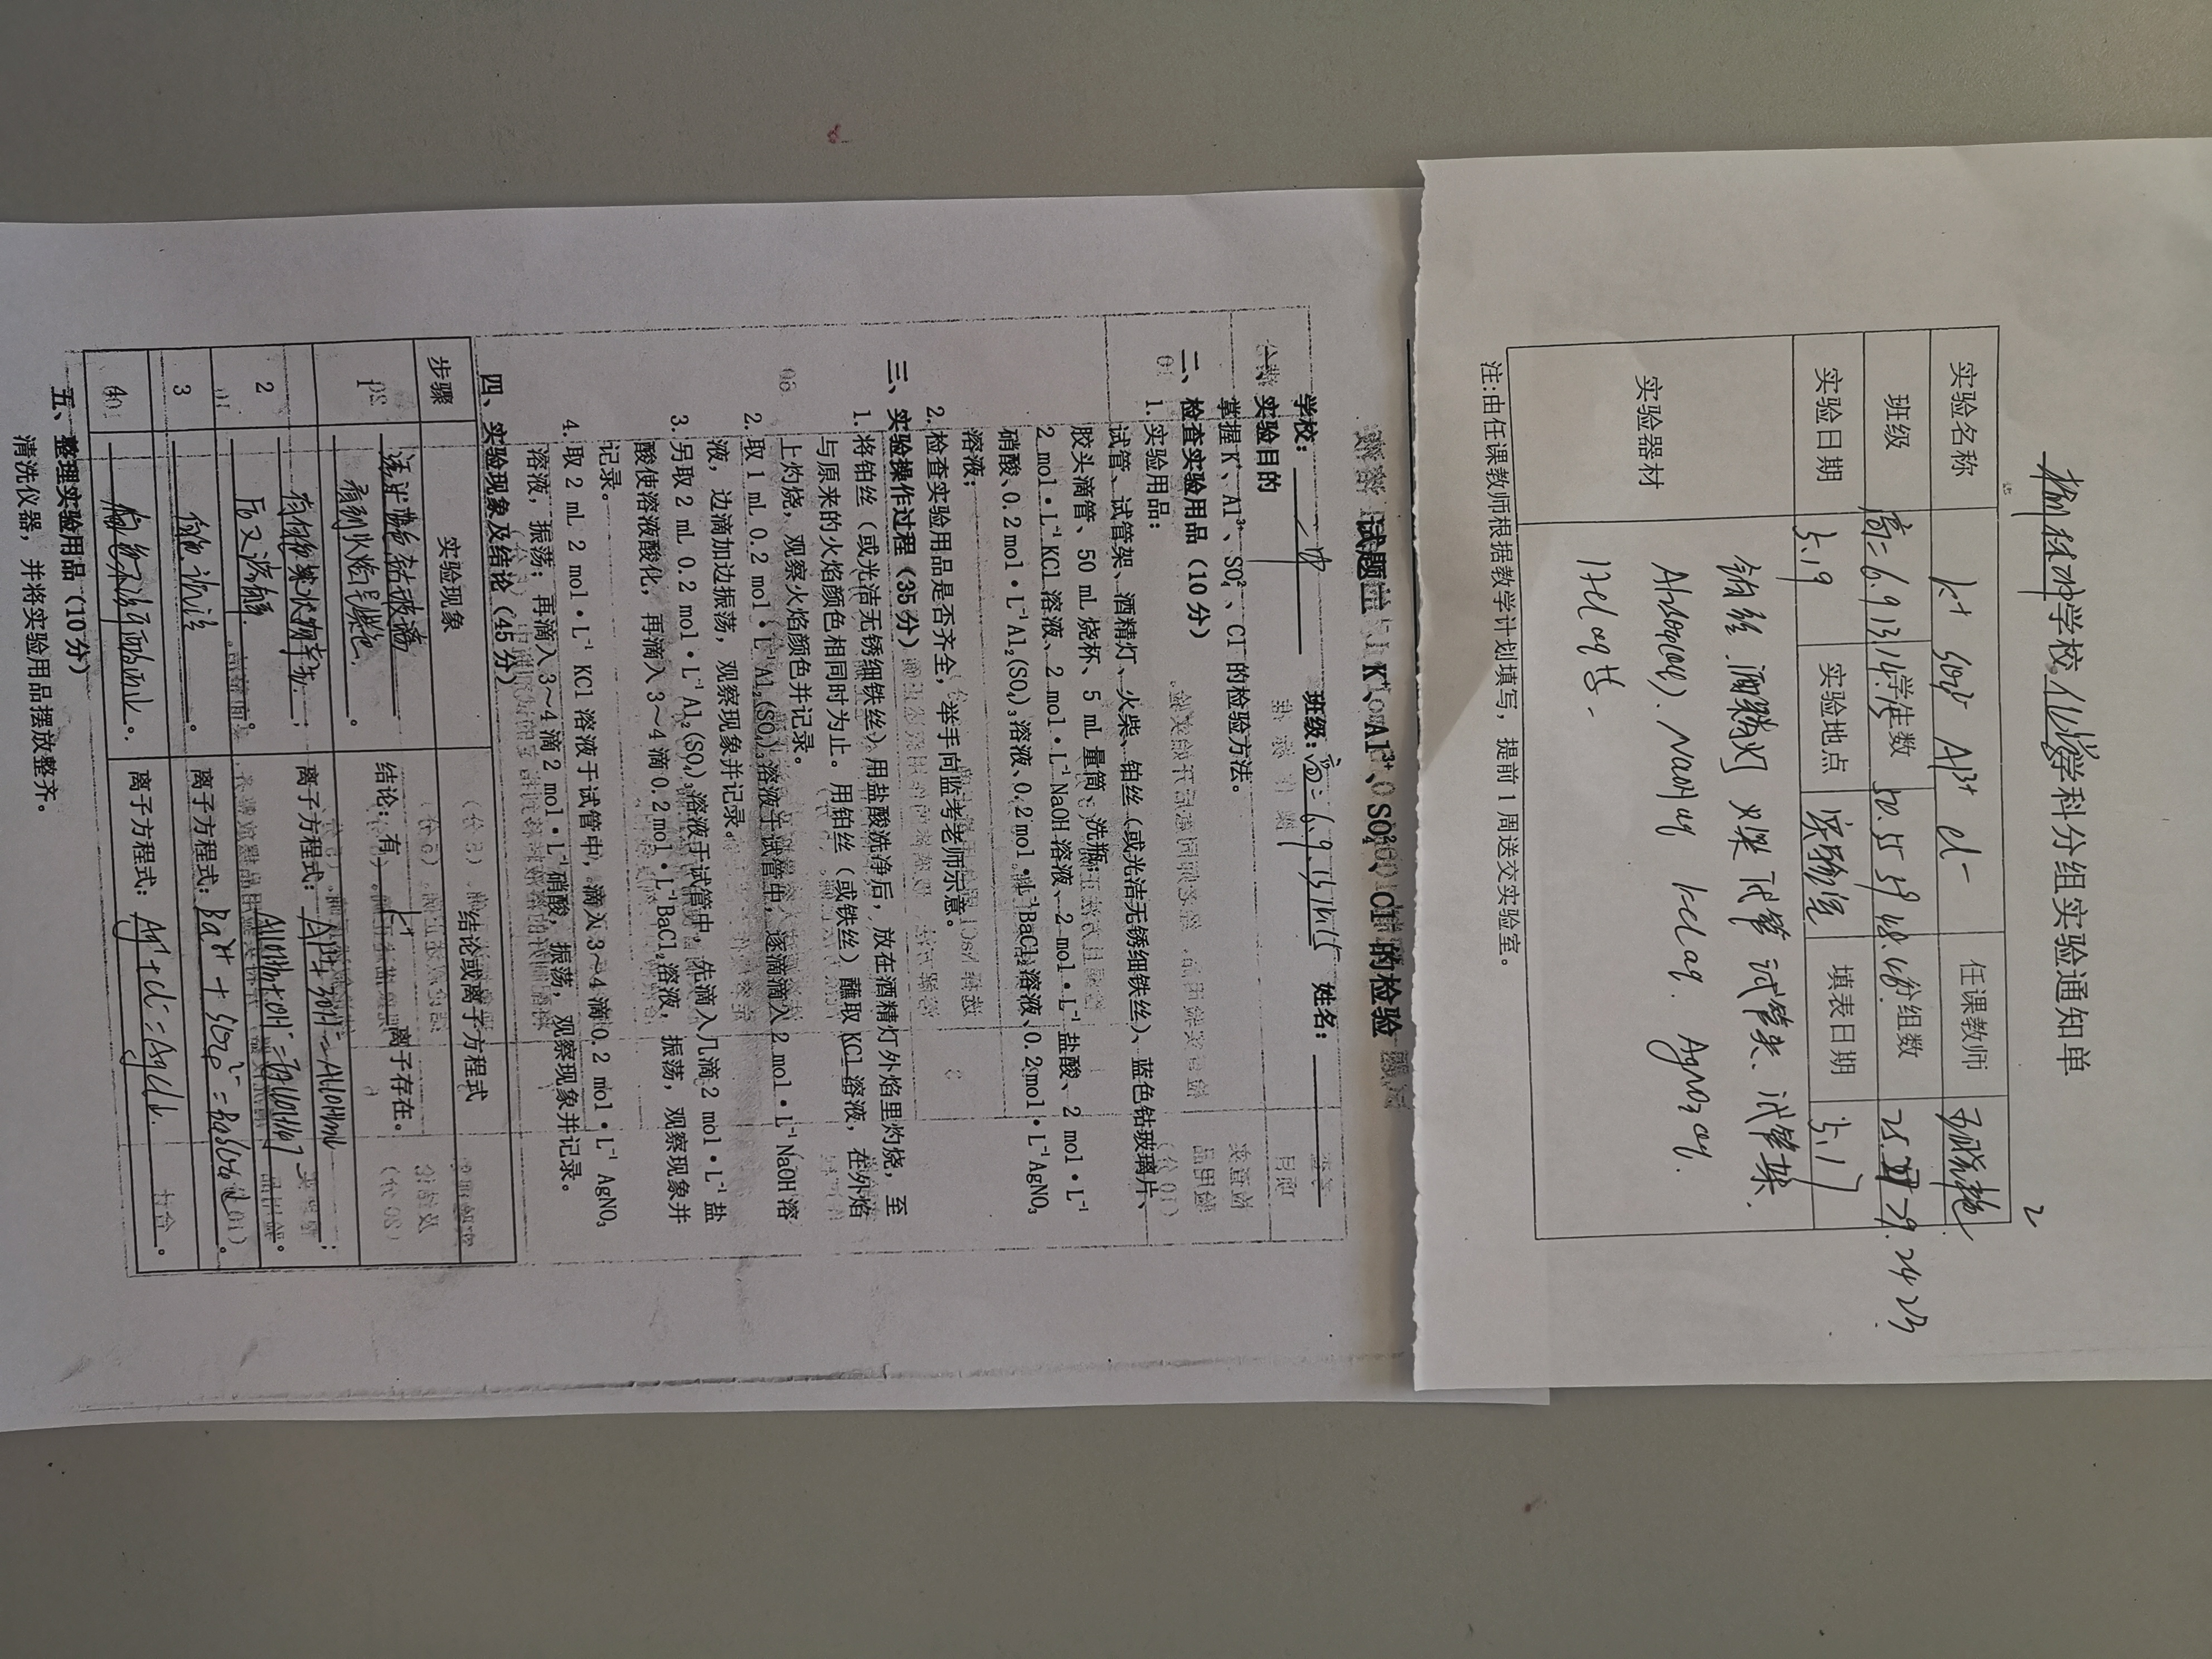 学校化学学科分组实验通知单
实验名称 K⁺ SO₄²⁻ Al³⁺ Cl⁻ 任课教师
班级 高二6.9.13.14.15 学生数 分组数
实验日期 5.19 实验地点 实验室 填表日期 5.17
实验器材
铂丝 酒精灯 火柴 试管 试管夹、试管架.
Al₂(SO₄)₃(aq). NaOH aq KCl aq. AgNO₃ aq.
HCl aq 等.
注:由任课教师根据教学计划填写，提前1周送交实验室。
K⁺、Al³⁺、SO₄²⁻、Cl⁻的检验
学校：一中 班级：高二6.9.13.14.15 姓名：
一、实验目的
掌握K⁺、Al³⁺、SO₄²⁻、Cl⁻的检验方法。
二、检查实验用品（10分）
1. 实验用品：
试管、试管架、酒精灯、火柴、铂丝（或光洁无锈细铁丝）、蓝色钴玻璃片、
胶头滴管、50 mL 烧杯、5 mL 量筒、洗瓶；
2 mol·L⁻¹KCl 溶液、2 mol·L⁻¹NaOH 溶液、2 mol·L⁻¹ 盐酸、2 mol·L⁻¹
硝酸、0.2 mol·L⁻¹Al₂(SO₄)₃溶液、0.2 mol·L⁻¹BaCl₂溶液、0.2 mol·L⁻¹AgNO₃
溶液；
2. 检查实验用品是否齐全，举手向监考老师示意。
三、实验操作过程（35分）
1. 将铂丝（或光洁无锈细铁丝）用盐酸洗净后，放在酒精灯外焰里灼烧，至
与原来的火焰颜色相同时为止。用铂丝（或铁丝）蘸取 KCl 溶液，在外焰
上灼烧，观察火焰颜色并记录。
2. 取 1 mL 0.2 mol·L⁻¹Al₂(SO₄)₃溶液于试管中，逐滴滴入 2 mol·L⁻¹NaOH 溶
液，边滴加边振荡，观察现象并记录。
3. 另取 2 mL 0.2 mol·L⁻¹Al₂(SO₄)₃溶液于试管中，先滴入几滴 2 mol·L⁻¹ 盐
酸使溶液酸化，再滴入 3～4 滴 0.2 mol·L⁻¹BaCl₂溶液，振荡，观察现象并
记录。
4. 取 2 mL 2 mol·L⁻¹ KCl 溶液于试管中，滴入 3～4 滴 0.2 mol·L⁻¹ AgNO₃
溶液，振荡；再滴入 3～4 滴 2 mol·L⁻¹硝酸，振荡，观察现象并记录。
四、实验现象及结论（45分）
步骤 实验现象 结论或离子方程式
1 透过蓝色钴玻璃
看到火焰呈紫色。 结论：有 K⁺ 离子存在。
2 有白色絮状物产生；
后又溶解。 离子方程式：Al³⁺+3OH⁻=Al(OH)₃↓；
Al(OH)₃+OH⁻=[Al(OH)₄]⁻。
3 白色沉淀。 离子方程式：Ba²⁺+SO₄²⁻=BaSO₄↓。
4 离子方程式：Ag⁺+Cl⁻=AgCl↓。
五、整理实验用品（10分）
清洗仪器，并将实验用品摆放整齐。